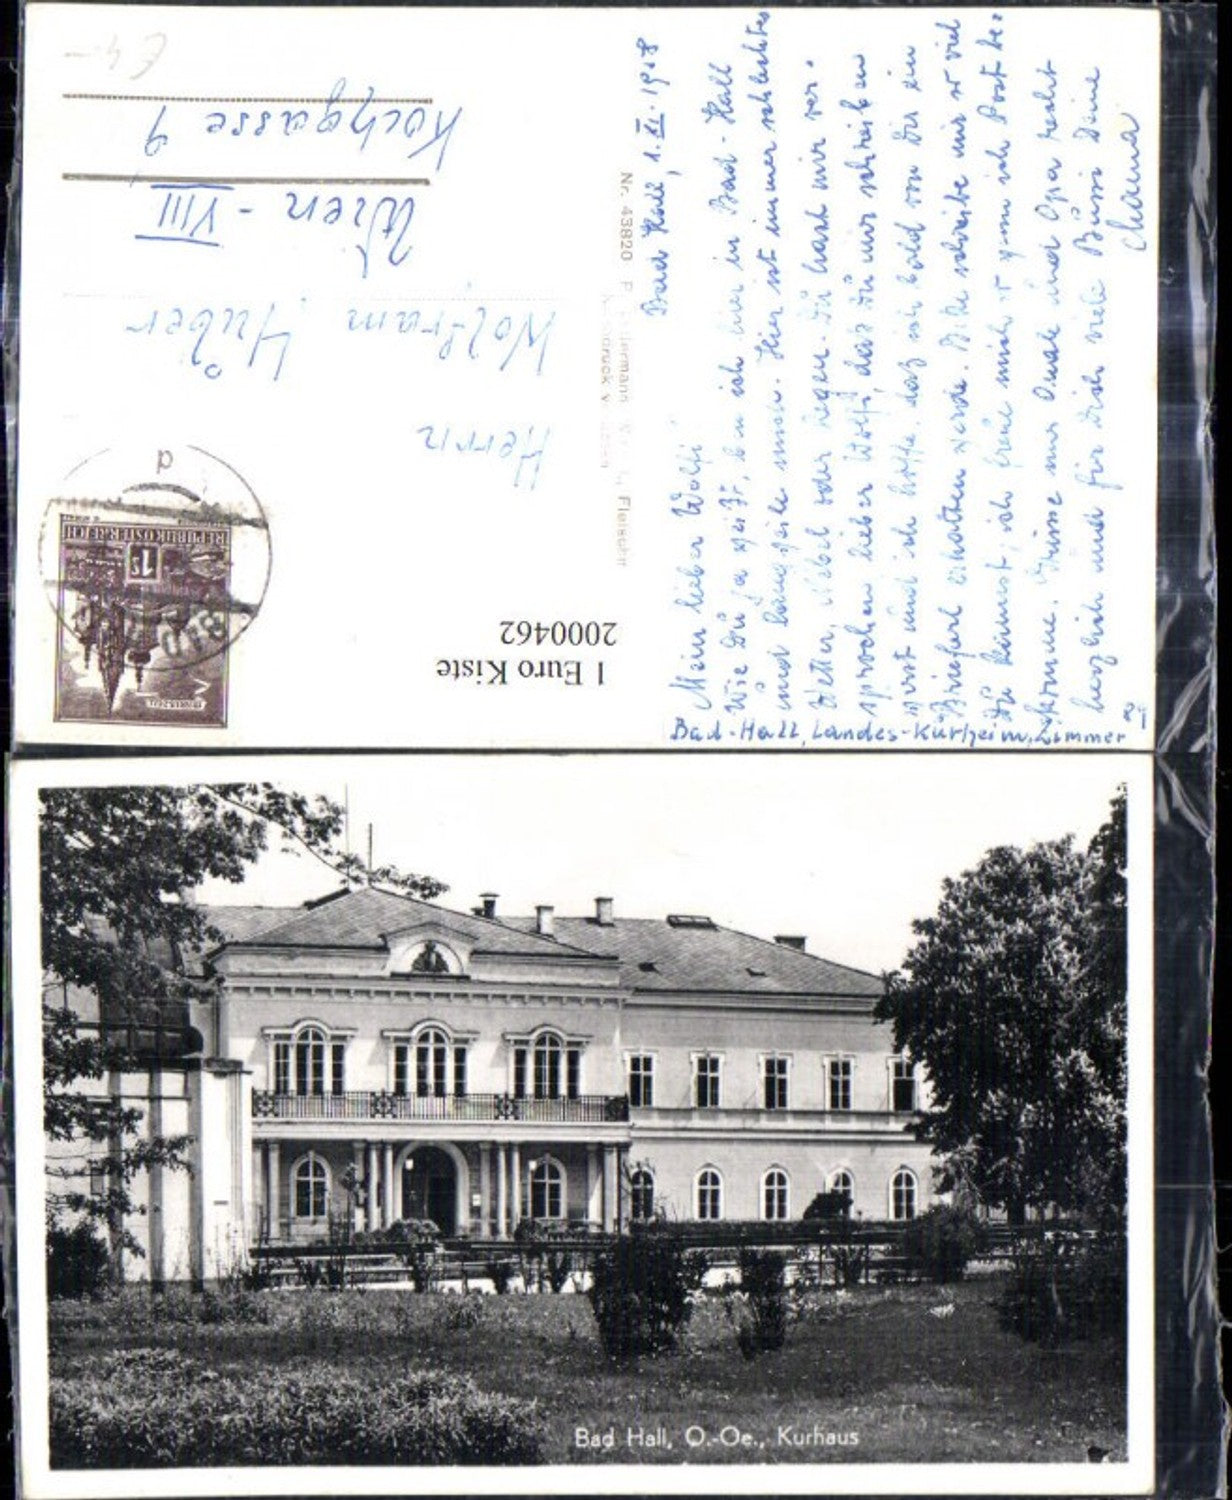 Bad Hall, 1. XI. 1958
Mein lieber Wolfi
Wie Du ja weißt, bin ich hier in Bad-Hall
und langweile mich. Hier ist immer schlechtes
Wetter, Nebel oder Regen. Du hast mir ver-
sprochen lieber Wolfi, daß Du mir schreiben
wirst und ich hoffe, daß ich bald von Dir ein
Brieferl erhalten werde. Bitte schreibe mir so viel
Du kannst, ich freue mich so wenn ich Post be-
komme. Grüsse mir Omale und Opa recht
herzlich und für Dich viele Bussi Deine
Bad-Hall, Landes-Kurheim, Zimmer
Herrn
Wolfram Huber
Wien - VIII
Kochgasse 9
€ 4.-
Nr. 43820
REPUBLIK ÖSTERREICH
1 S
BAD
d
1 Euro Kiste
2000462
Bad Hall, O.-Oe., Kurhaus